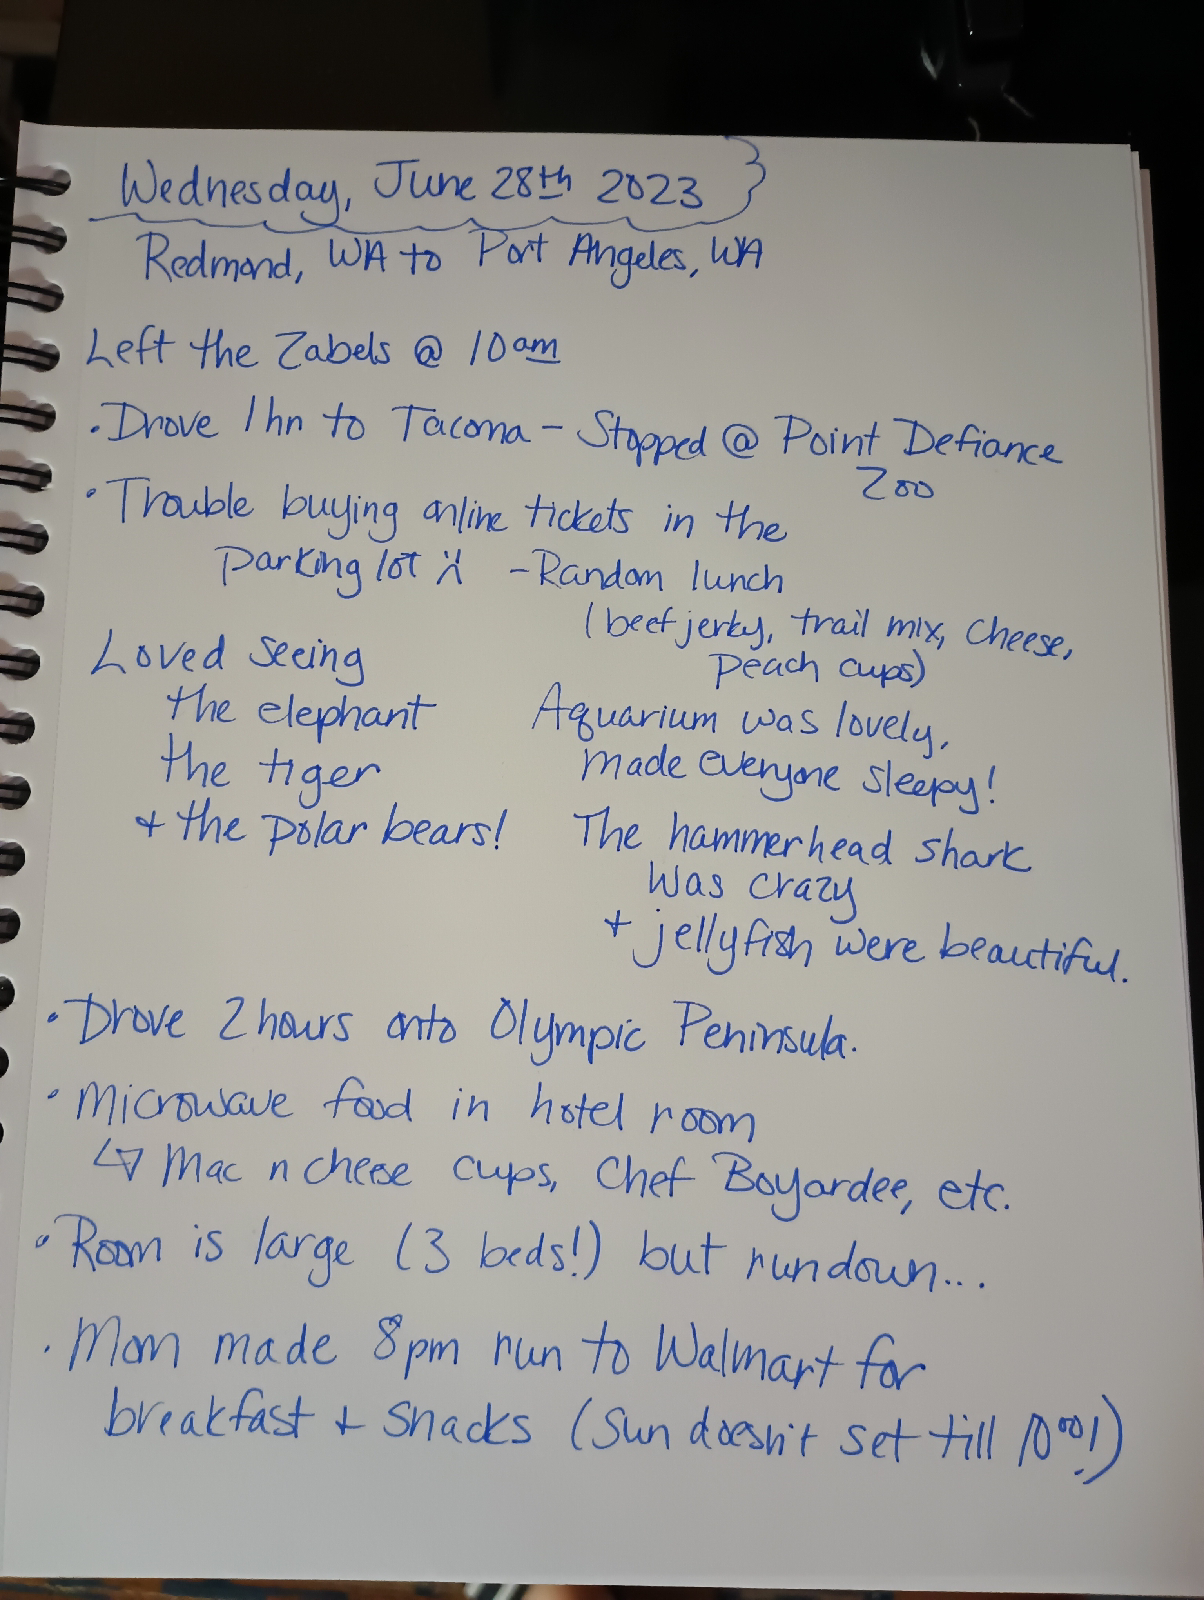 Wednesday, June 28th 2023
Redmond, WA to Port Angeles, WA
Left the Zabels @ 10am
• Drove 1 hr to Tacoma - Stopped @ Point Defiance
Zoo
• Trouble buying online tickets in the
parking lot :( - Random lunch
(beef jerky, trail mix, cheese,
peach cups)
Loved seeing
the elephant
the tiger
+ the polar bears!
Aquarium was lovely,
made everyone sleepy!
The hammerhead shark
was crazy
+ jellyfish were beautiful.
• Drove 2 hours onto Olympic Peninsula.
• Microwave food in hotel room
↳ Mac n cheese cups, Chef Boyardee, etc.
• Room is large (3 beds!) but rundown...
• Mom made 8pm run to Walmart for
breakfast + snacks (Sun doesn't set till 10:00!)